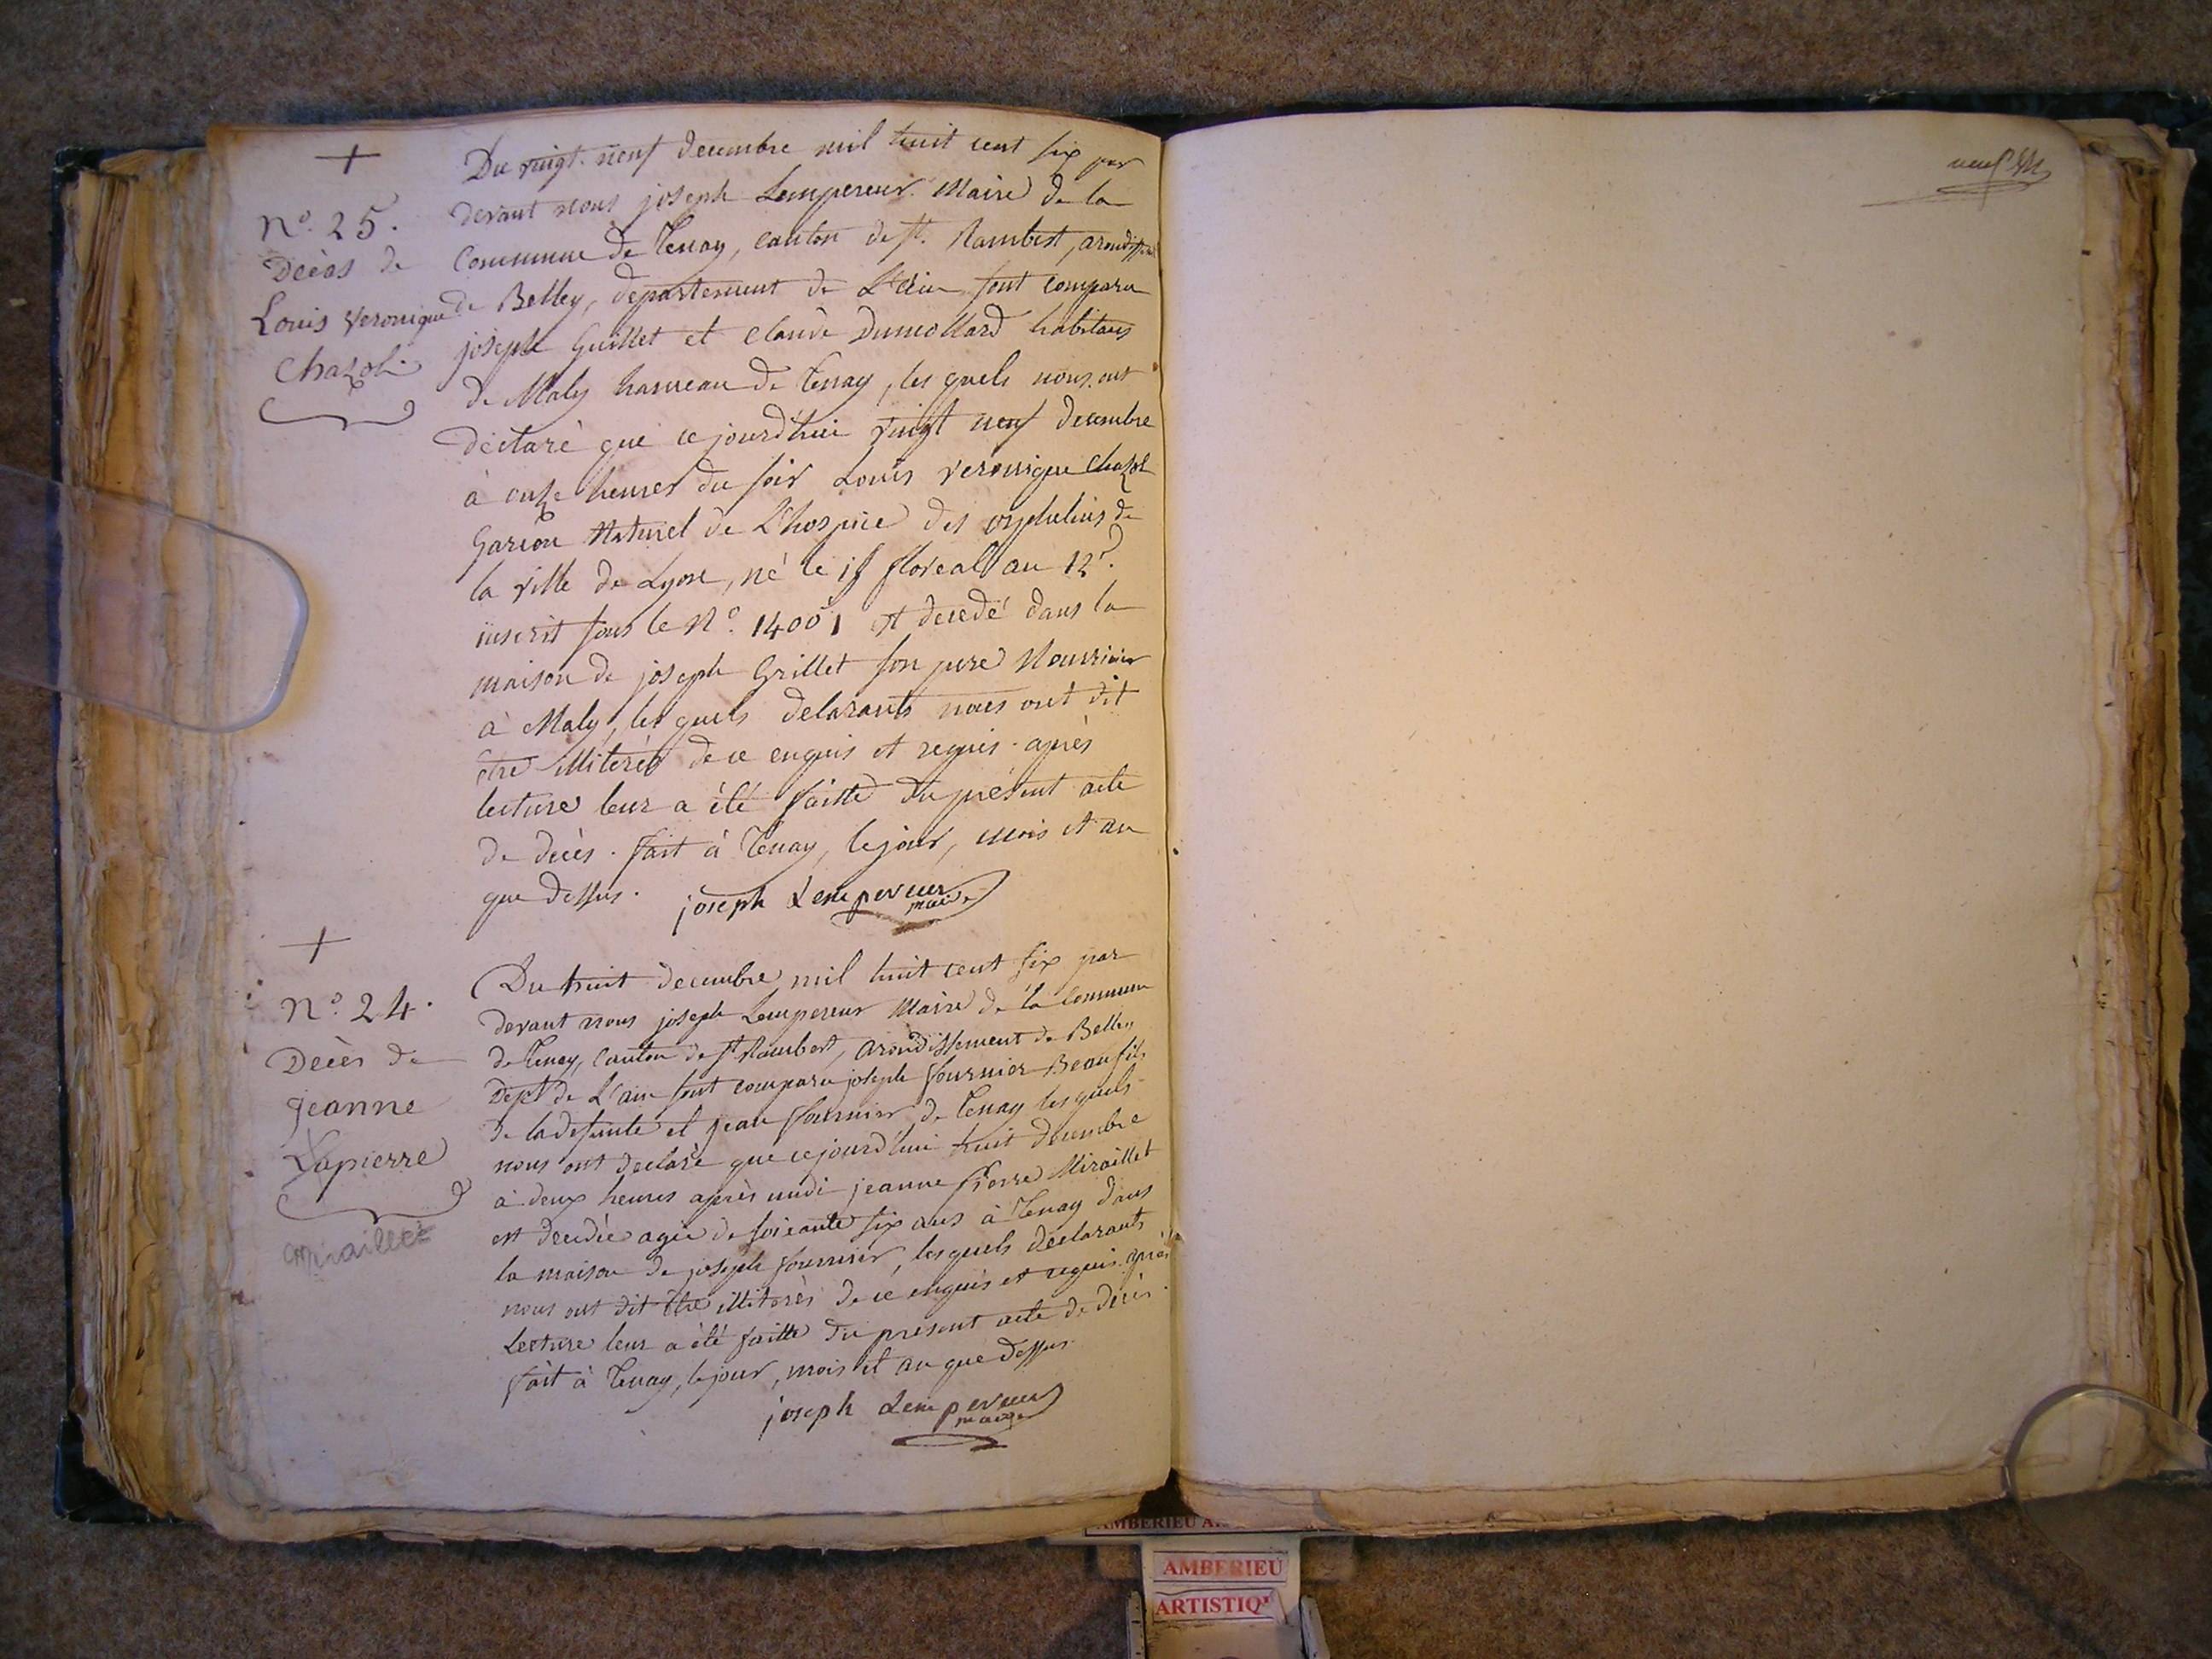 +
N.° 25.
Décès de
Louis Veronique
Chazol
Du vingt-neuf decembre mil huit cent six par
devant nous joseph Lempereur Maire de la
Commune de Tenay, canton de St. Rambert, arondissemt
de Belley, departement de L'Ain sont comparu
joseph Guillet et claude Dumollard habitans
de Maly hameau de Tenay, les quels nous ont
déclaré que ce jourd'hui vingt neuf decembre
à onze heures du soir Louis veronique Chazol
Garçon Naturel de L'hospice des orphelins de
la ville de Lyon, né le floreal an 12e.
inscrit sous le N.° 14001 est decedé dans la
maison de joseph Grillet son pere Nourricier
à Maly, les quels delarants nous ont dit
être illiterés de ce enquis et requis. après
lecture leur a été faitte du présent acte
de décès. fait à Tenay, le jour, mois et an
que dessus. joseph Lempereur
maire
+
N.° 24.
Décès de
jeanne
Lapierre
Miraillet
Du huit decembre mil huit cent six par
devant nous joseph Lempereur Maire de la Commune
de Tenay, Canton de St Rambert, arondissement de Belley
Dept de L'ain sont comparu joseph fournier Beaufils
de la defunte et jean fournier de Tenay les quels
nous ont declaré que ce jourd'hui huit decembre
à deux heures après midi jeanne Pierre Miraillet
est decedée agée de soixante six ans à Tenay dans
la maison de joseph fournier, les quels declarants
nous ont dit être illiterés de ce enquis et requis. après
Lecture leur a été faitte du present acte de décès.
fait à Tenay, le jour, mois et an que dessus.
joseph Lempereur
maire
neuf
AMBERIEU
AMBERIEU
ARTISTIQ